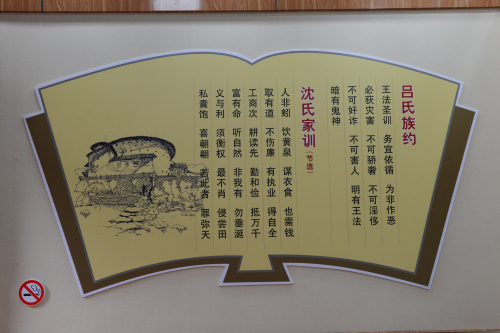 吕氏族约
王法圣训 务宜依循 为非作恶
必获灾害 不可骄奢 不可淫侈
不可奸诈 不可害人 明有王法
暗有鬼神
沈氏家训(节选)
人非蚓 饮黄泉 谋衣食 也需钱
取有道 不伤廉 有执业 得自全
工商次 耕读先 勤和俭 抵万千
富有命 听自然 非我有 勿垂涎
义与利 须衡权 最不肖 侵尝田
私囊饱 喜翩翩 若此者 罪弥天